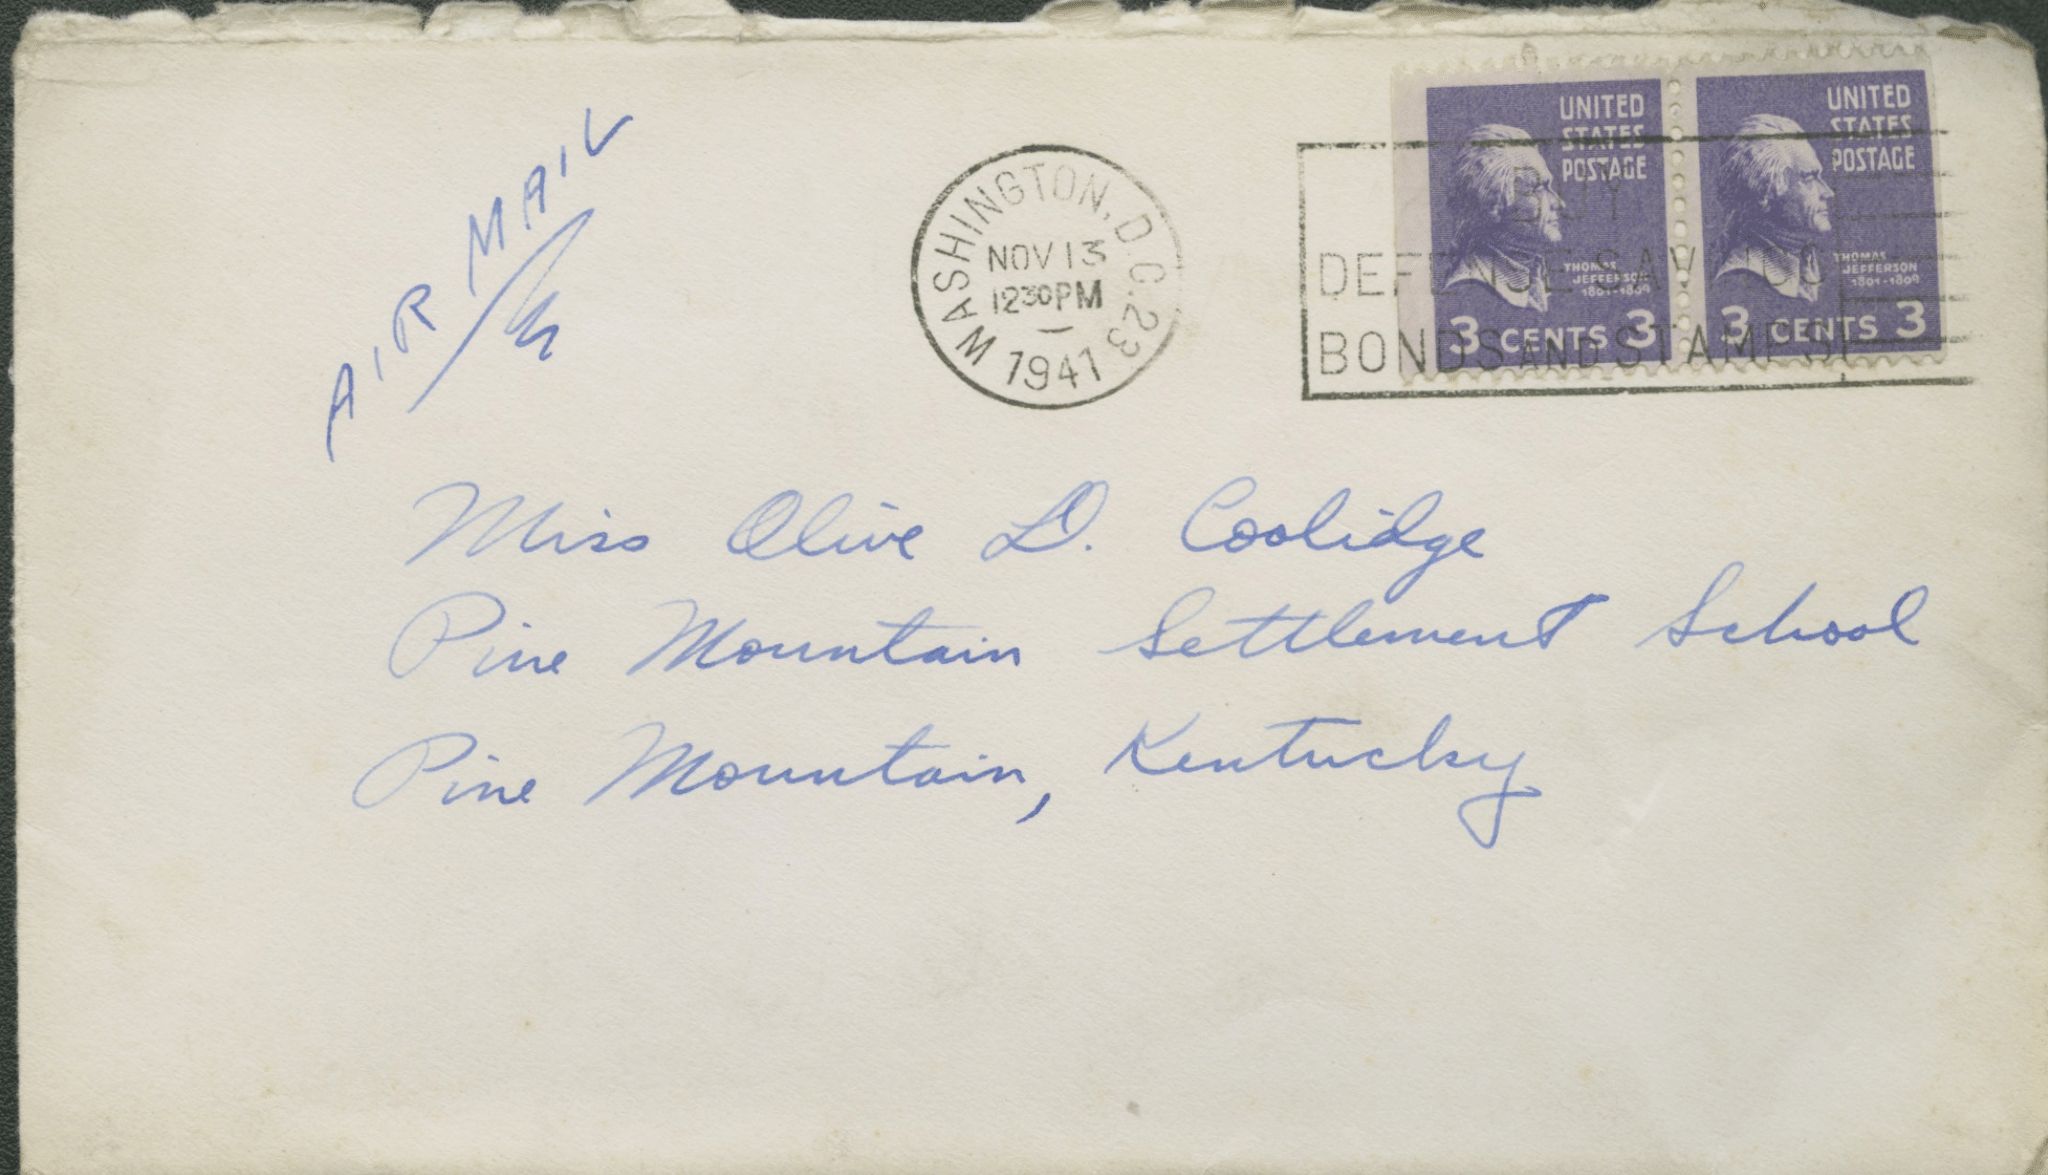 AIR MAIL
WASHINGTON, D.C. 23
NOV 13
1230 PM
1941
BUY
DEFENSE SAVINGS
BONDS AND STAMPS
UNITED
STATES
POSTAGE
THOMAS
JEFFERSON
1801-1809
3 CENTS 3
UNITED
STATES
POSTAGE
THOMAS
JEFFERSON
1801-1809
3 CENTS 3
Miss Olive D. Coolidge
Pine Mountain Settlement School
Pine Mountain, Kentucky